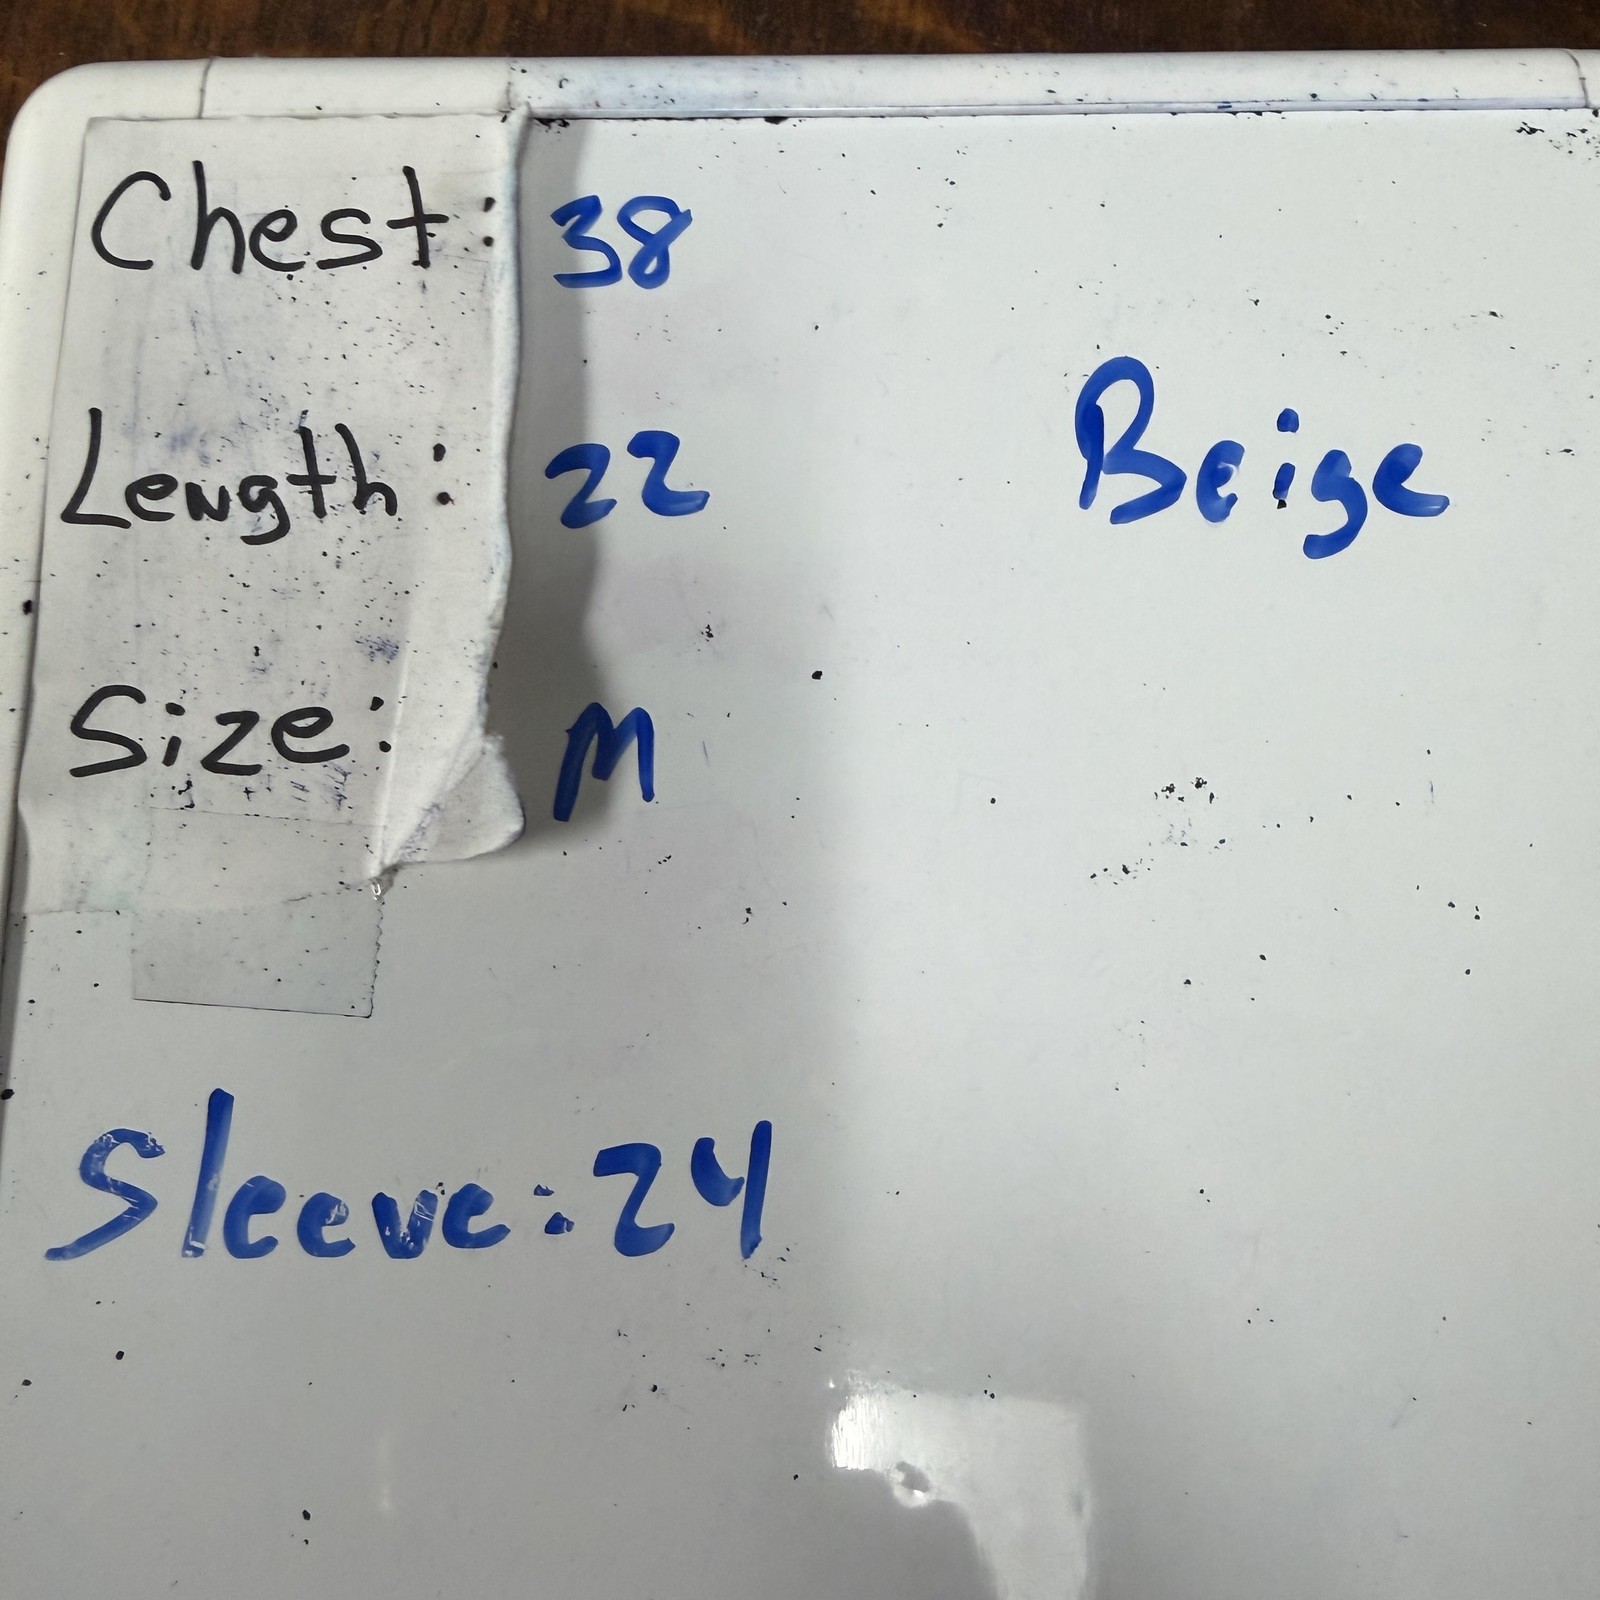 Chest: 38
Length: 22
Beige
Size: M
Sleeve: 24